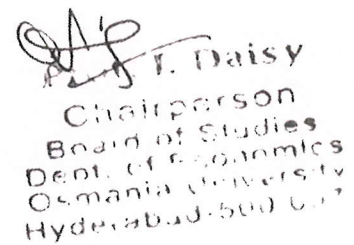 T. Daisy
Chairperson
Board of Studies
Dept. of Economics
Osmania University
Hyderabad-500 007